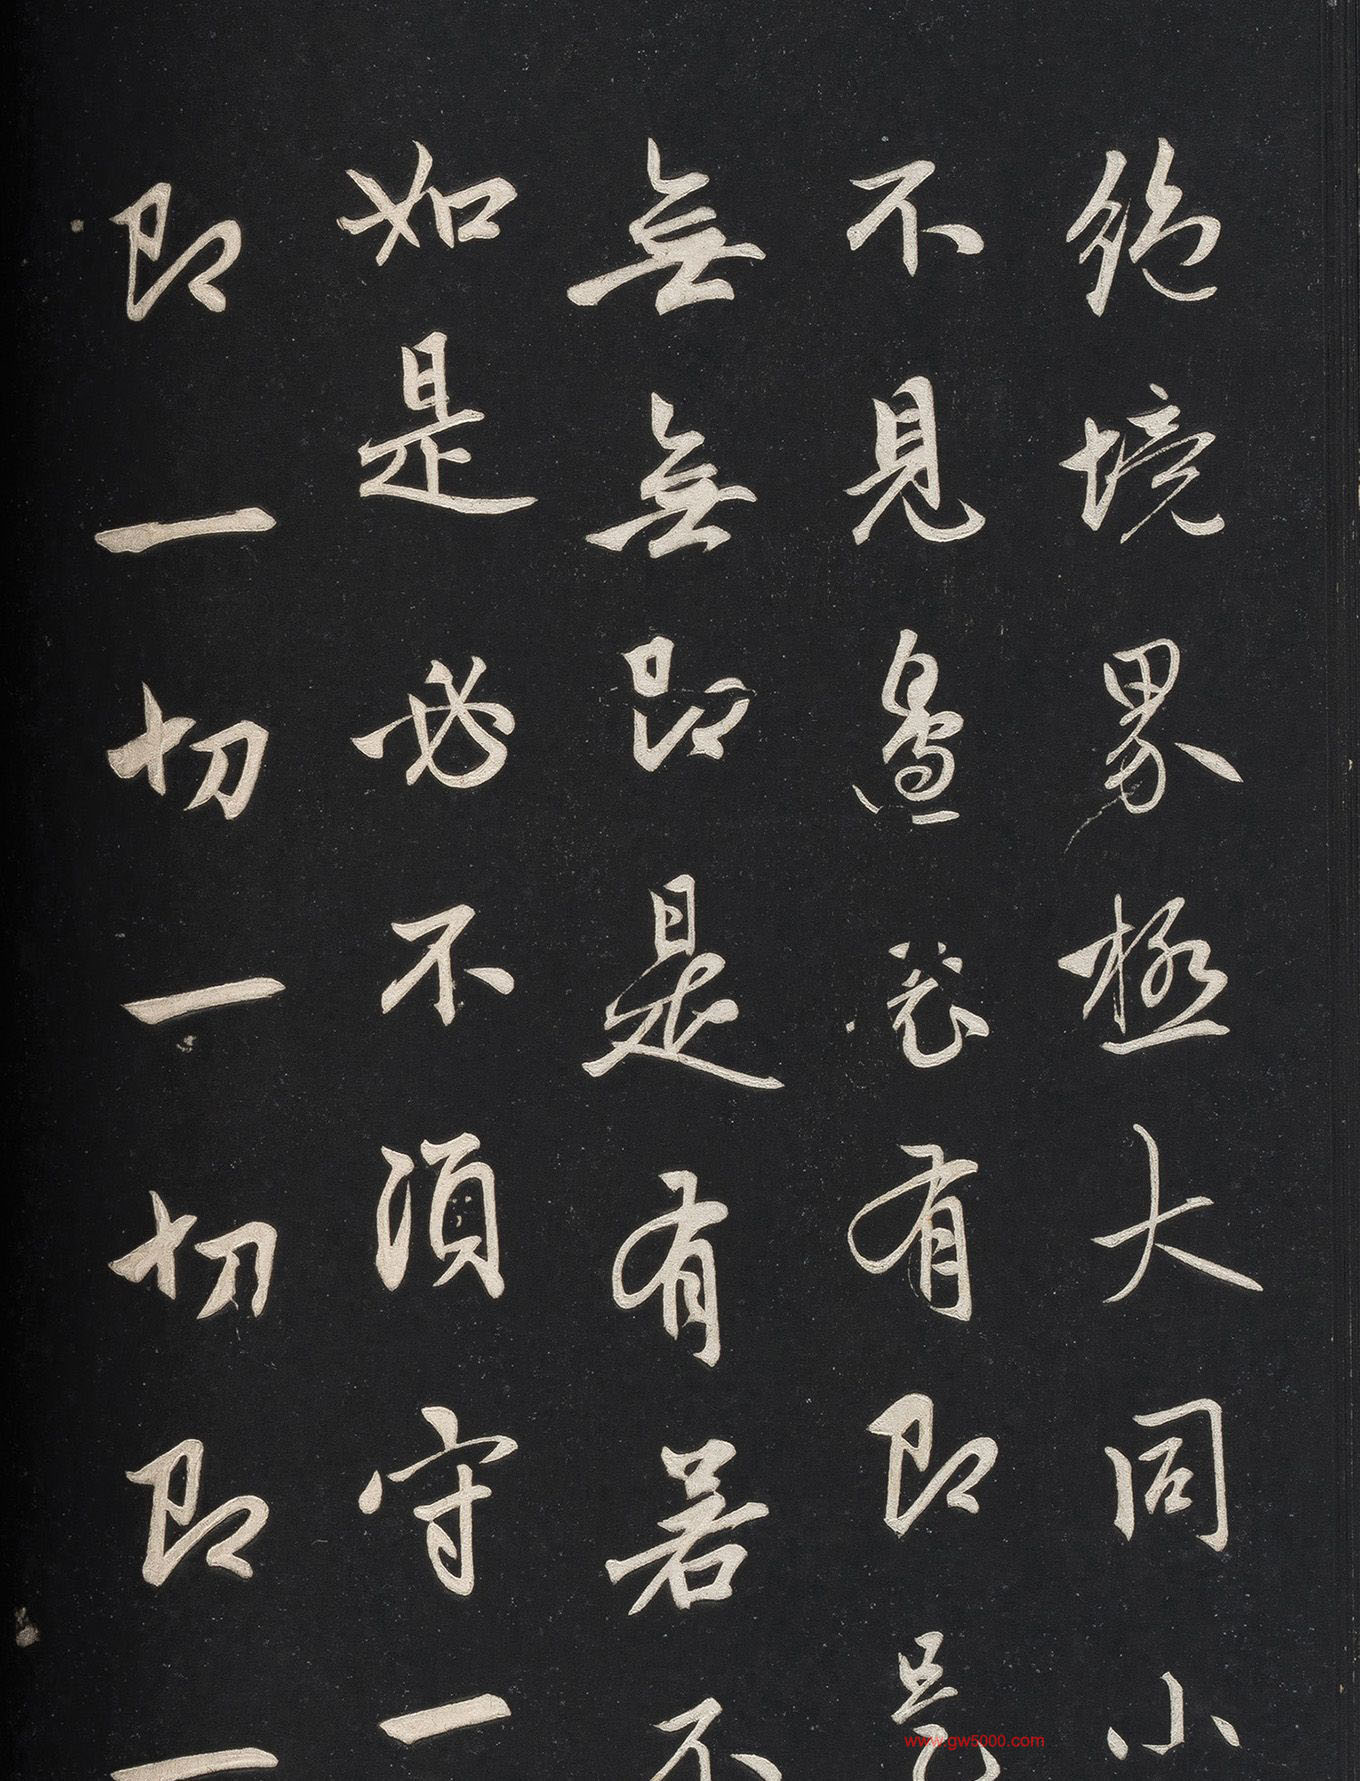 絶境界極大同小
不見邊表有即是
無無即是有若不
如是必不須守一
即一切一切即一
www.gw5000.com